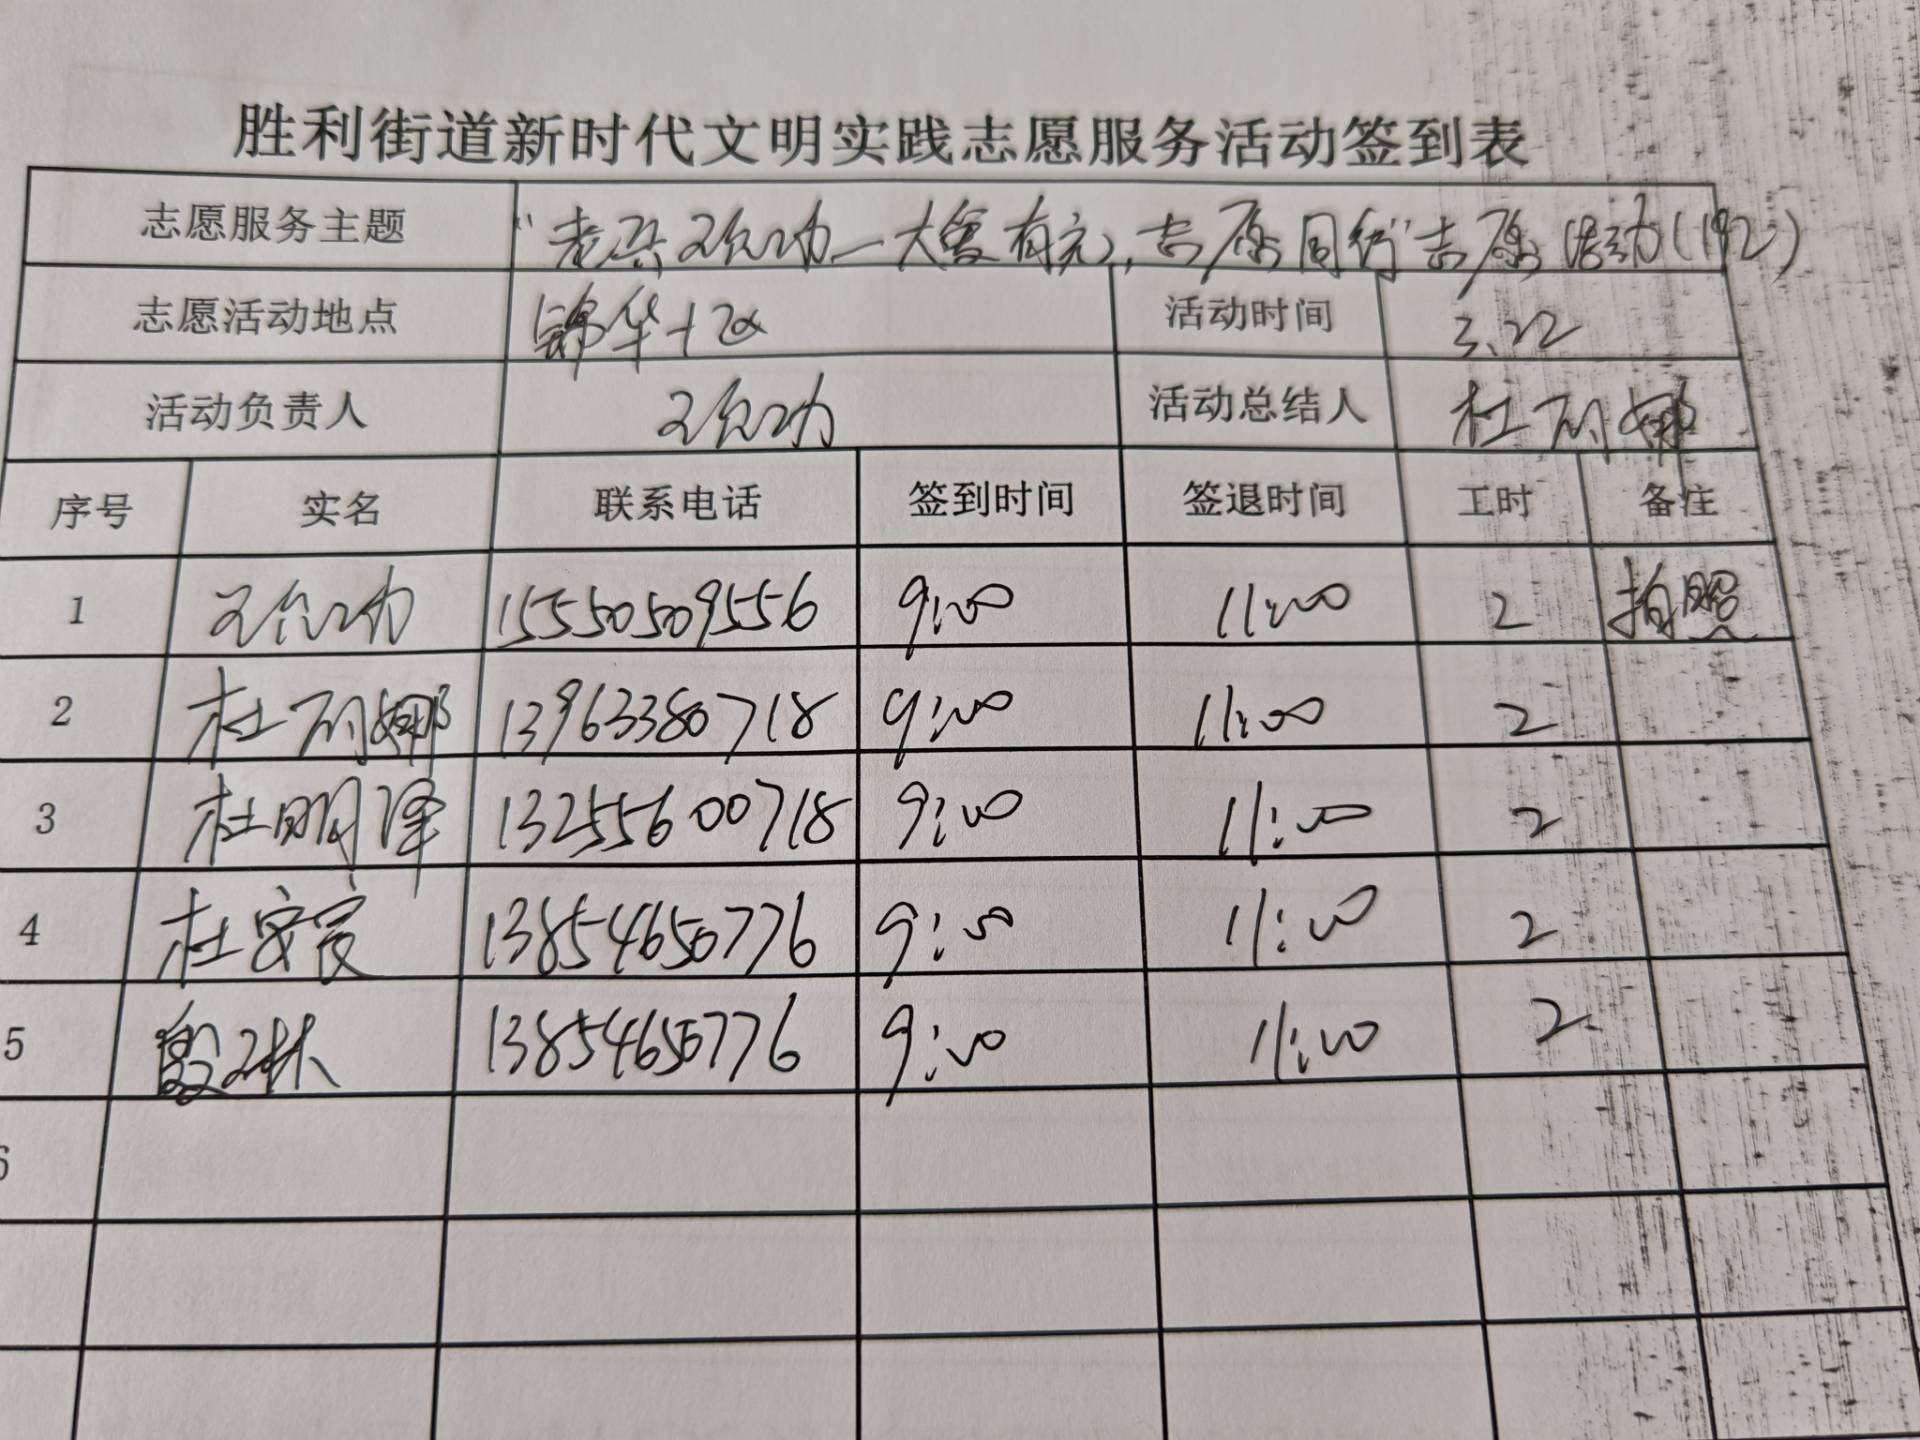 胜利街道新时代文明实践志愿服务活动签到表
志愿服务主题 “老兵 大爱有元,志愿同行”志愿活动(192)
志愿活动地点 锦华十区 活动时间 3.22
活动负责人 活动总结人 杜丽娜
序号 实名 联系电话 签到时间 签退时间 工时 备注
1 15550509556 9:00 11:00 2 拍照
2 杜丽娜 13963380718 9:00 11:00 2
3 杜明泽 13255600718 9:00 11:00 2
4 杜安宸 13854650776 9:00 11:00 2
5 13854650776 9:00 11:00 2
6